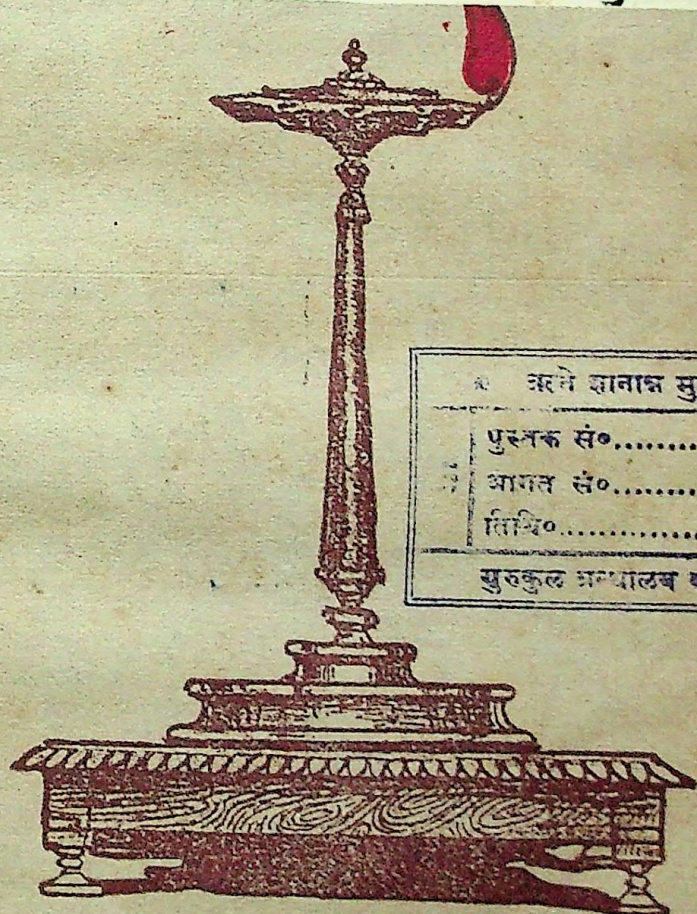 ऋते ज्ञानान्न मु
पुस्तक सं०.........
आगत सं०.........
तिथि०.............
गुरुकुल ग्रन्थालय